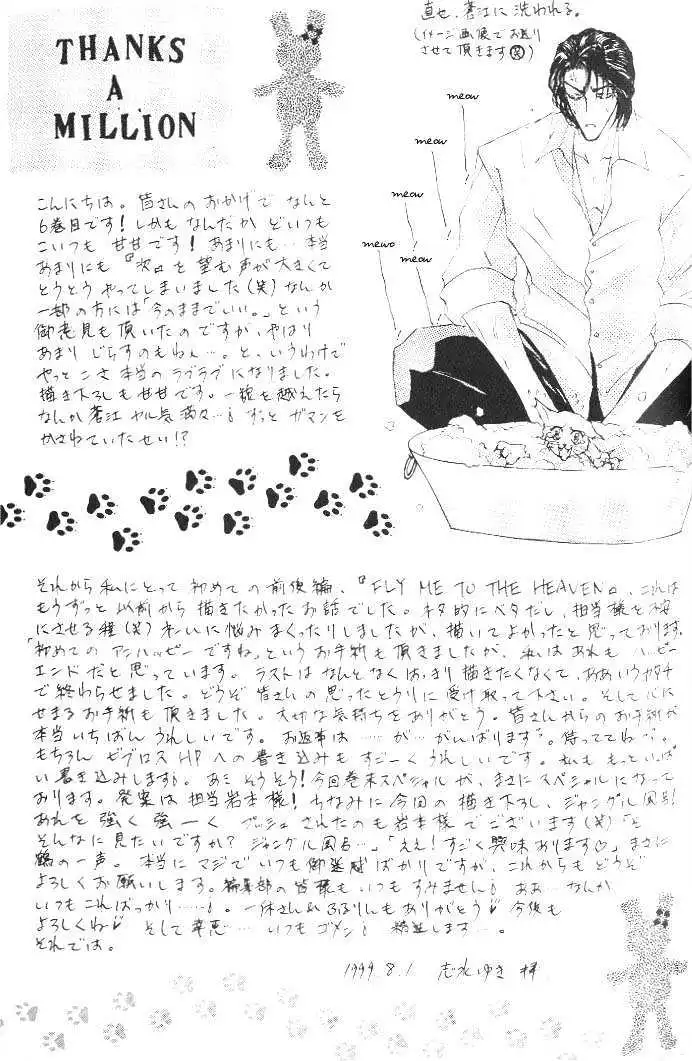 THANKS
A
MILLION
直セ、蒼江に洗われる。
(イメージ画像でお送り
させて頂きます(笑))
meow
meow
meow
mewo
meow
こんにちは。皆さんのおかげでなんと
6巻目です!しかもなんだかどいつも
こいつも甘甘です!あまりにも…本当
あまりにも『次』を望む声が大きくて
とうとうやってしまいました(笑)なんか
一部の方には「今のままでいい。」という
御意見も頂いたのですが、やはり
あまりじらすのもねぇ…。と、いうわけで
やっとこさ本当のラブラブになりました。
描き下ろしも甘甘です。一線を越えたら
なんか蒼江ヤル気満々…! ずっとガマンを
かさねていたせい!?
それから私にとって初めての前後編、『FLY ME TO THE HEAVEN』。これは
もうずっと以前から描きたかったお話でした。ネタ的にベタだし、担当様を不安
にさせる程(笑)大いに悩みまくったりしましたが、描いてよかったと思っております。
「初めてのアンハッピーですね」というお手紙も頂きましたが、私はあれもハッピー
エンドだと思っています。ラストはなんとなくはっきり描きたくなくて、ああいうカタチ
で終わらせました。どうぞ皆さんの思ったとうりに受け取って下さい。そして心に
せまるお手紙も頂きました。大切な気持ちをありがとう。皆さんからのお手紙が
本当いちばんうれしいです。お返事は……が…がんばります。待っててね。
もちろんビブロスHPへの書き込みもすごーくうれしいです。私ももっといっぱ
い書き込みします。あ、そうそう!今回巻末スペシャルが、まさにスペシャルになって
おります。発案は担当岩本様!ちなみに今回の描き下ろし、ジャングル風呂!
あれを強く強ーくプッシュされたのも岩本様でございます(笑)"と
そんなに見たいですか?ジャングル風呂…」「ええ!すごく興味あります♡」まさに
鶴の一声。本当にマジでいつも御迷惑ばかりですが、これからもどうぞ
よろしくお願いします。編集部の皆様も、いつもすみません! ああ…なんか
いつもこればっかり……!。一休さん&ふるりんもありがとう♡今後も
よろしくね♡ そして幸恵…いつもゴメン! 精進します…。
それでは。
1999.8.1 志水ゆき 拝